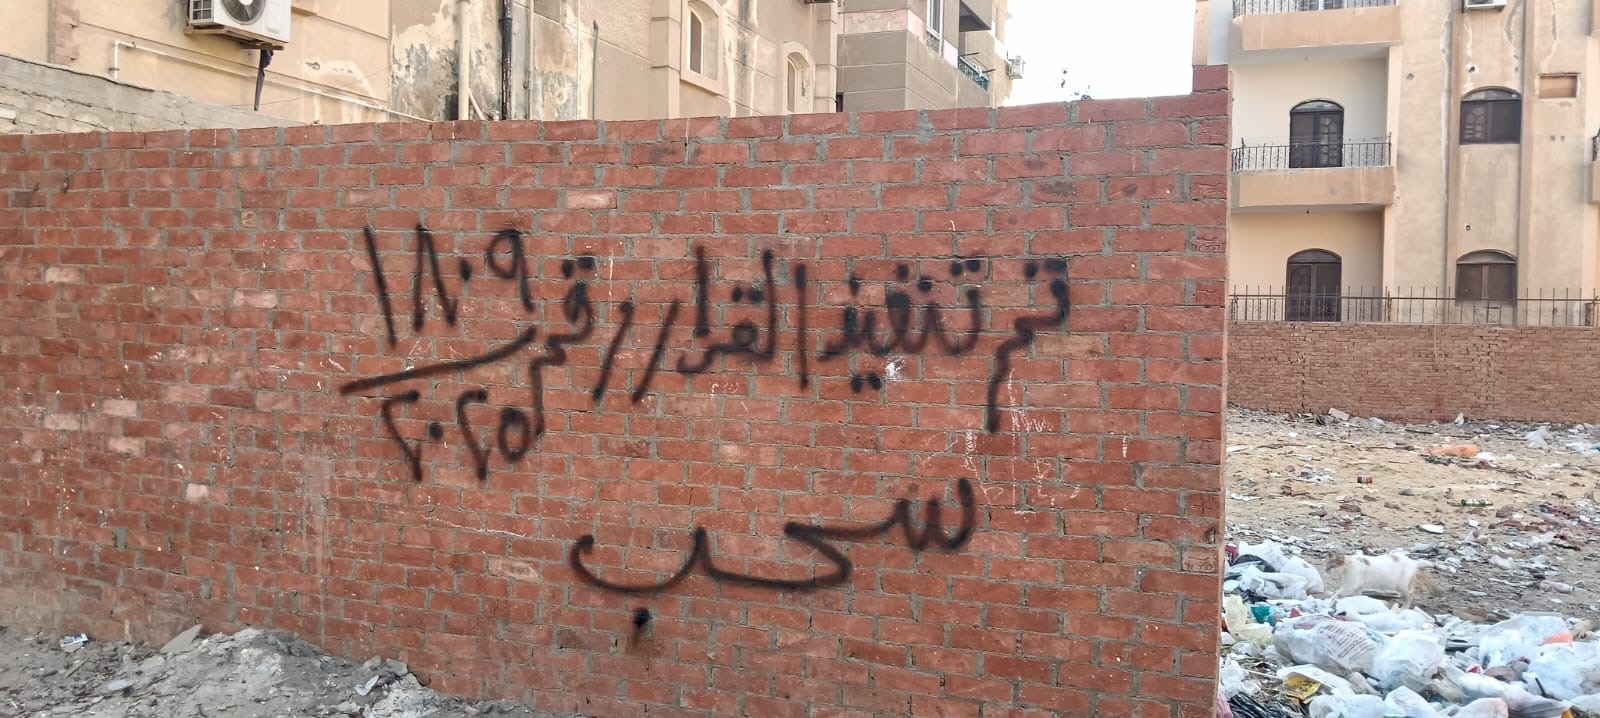 تم تنفيذ القرار رقم ١٨٠٩ / ٢٠٢٥
سحب